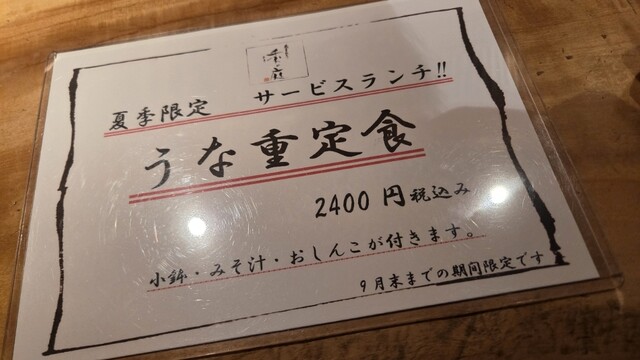 夏季限定 サービスランチ!!
うな重定食
2400円税込み
小鉢・みそ汁・おしんこが付きます。
9月末までの期間限定です